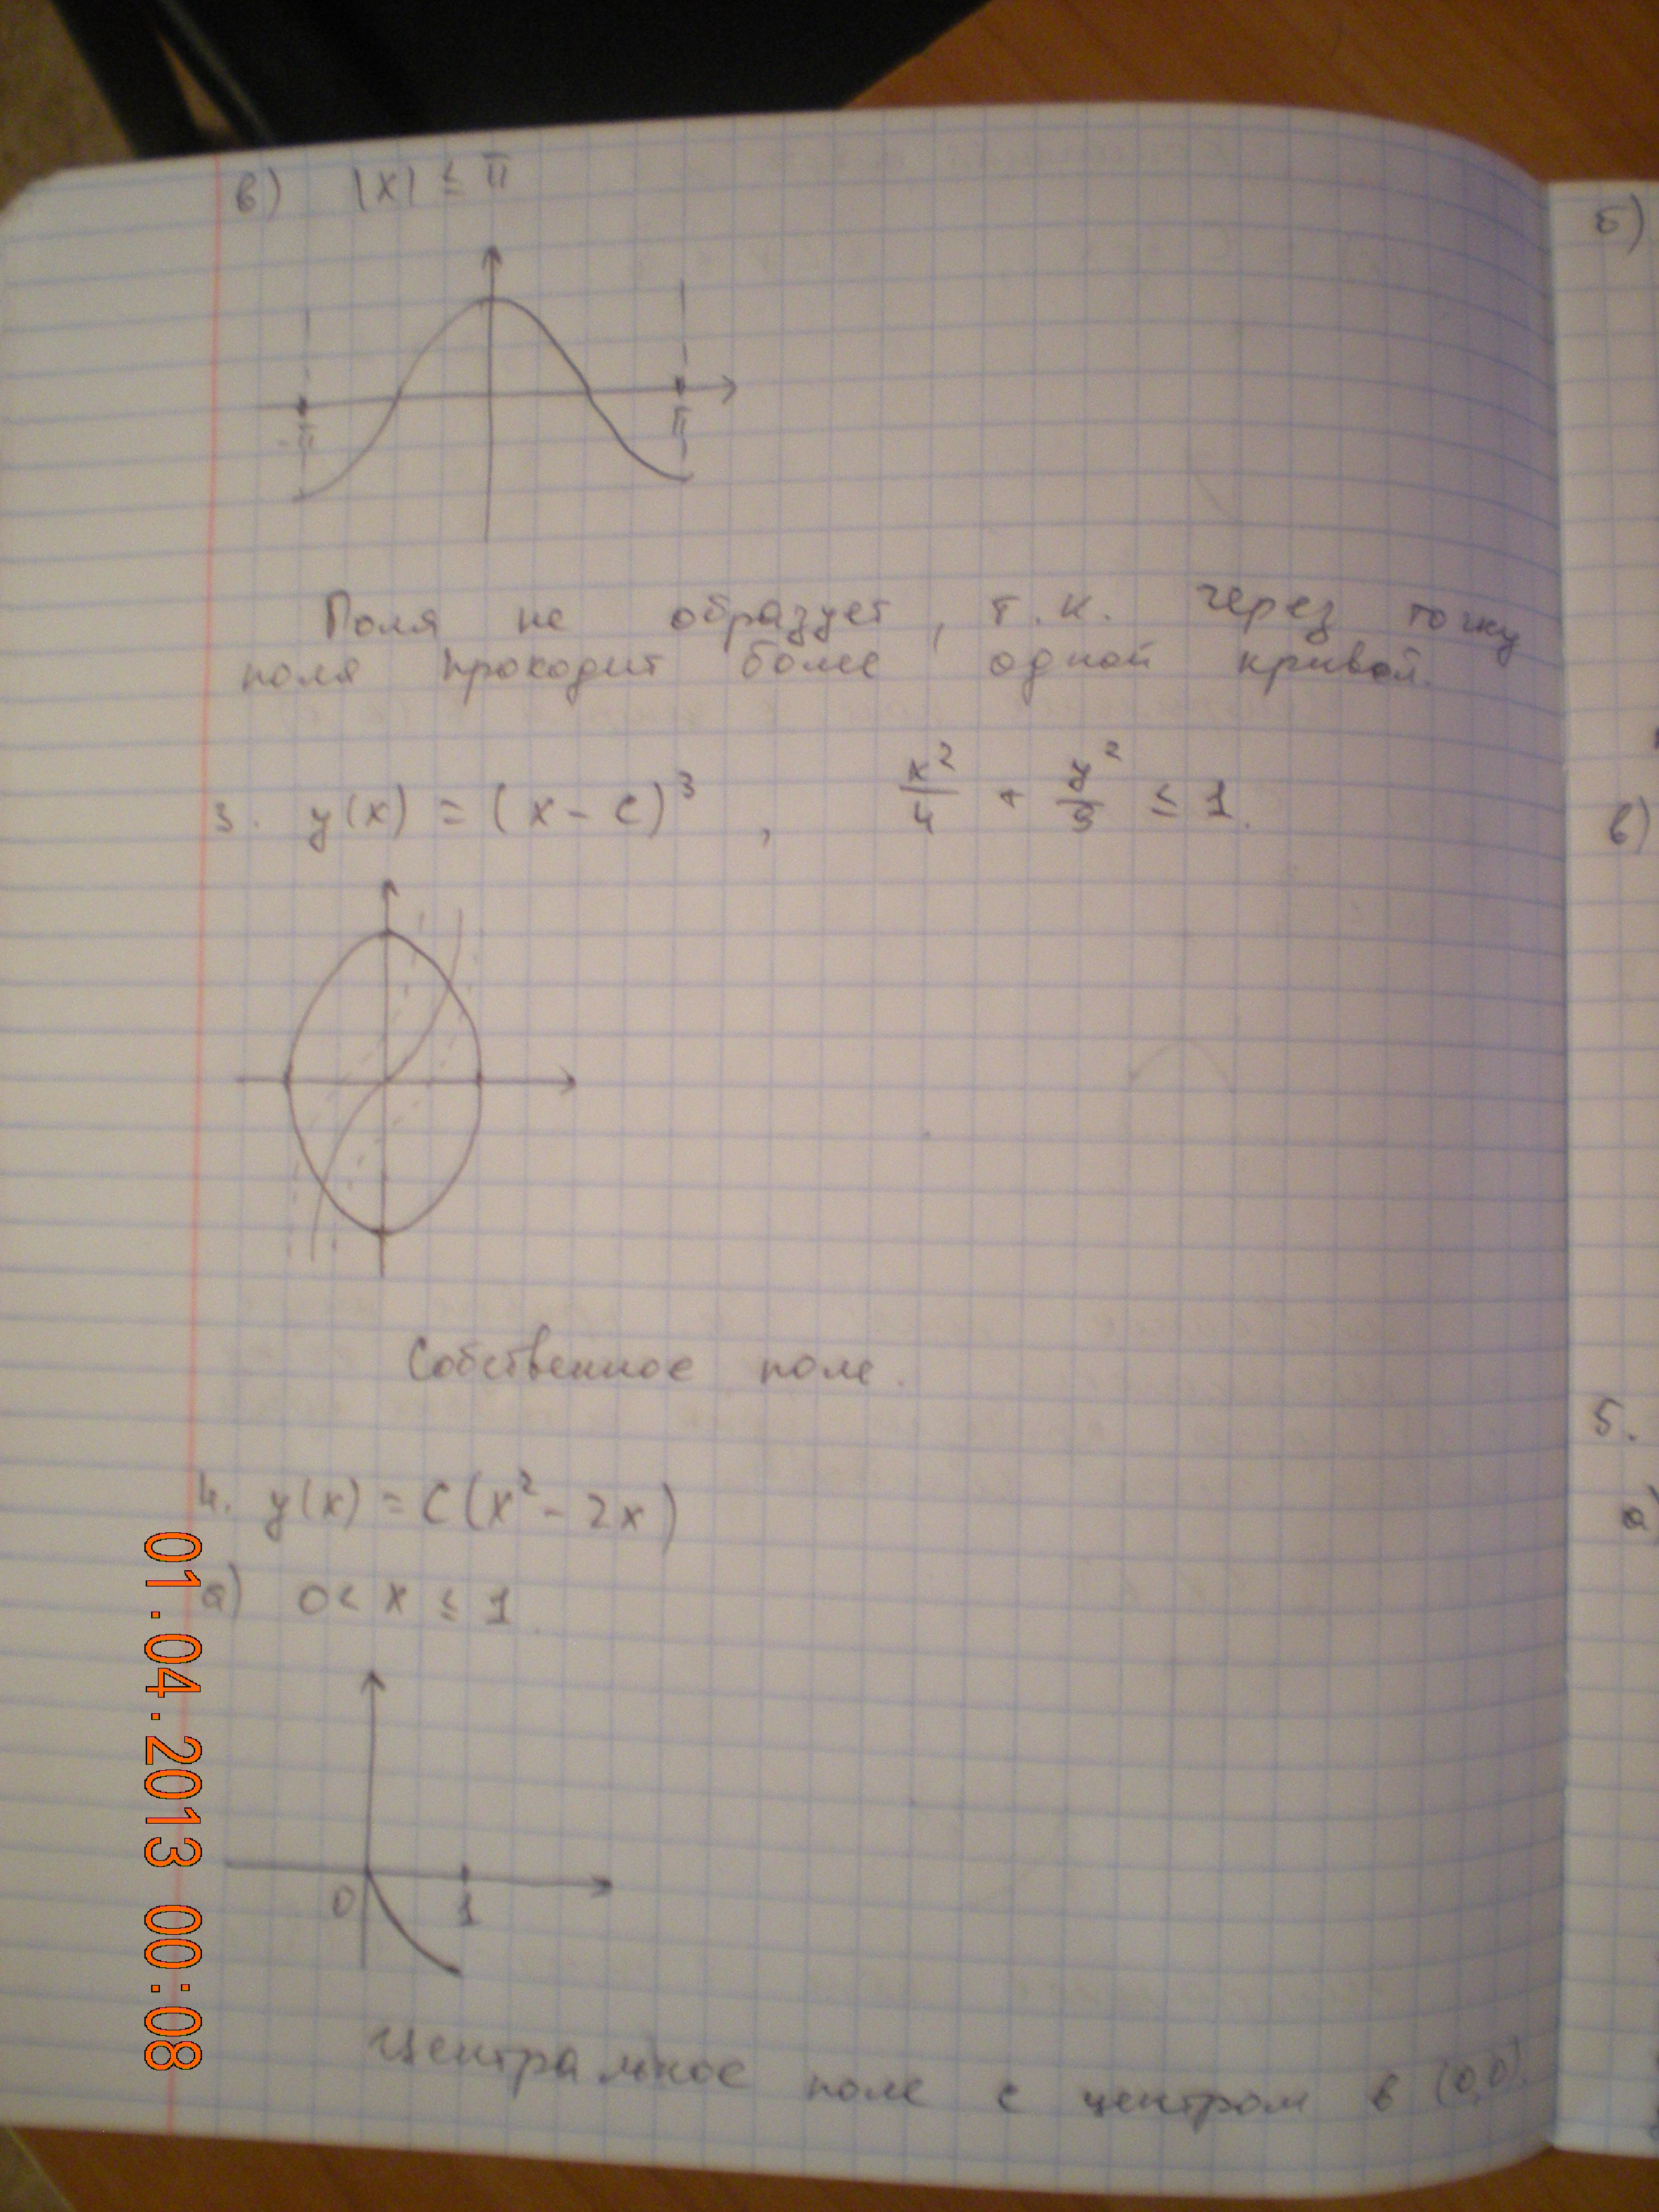 в) |x| ≤ π
-π π
Поля не образует, т.к. через точку
поля проходит более одной кривой.
3. y(x) = (x - c)³, x²/4 + y²/9 ≤ 1.
Собственное поле.
4. y(x) = C(x² - 2x)
а) 0 < x ≤ 1
0 1
Центральное поле с центром в (0,0).
б)
в)
5.
а)
01.04.2013 00:08